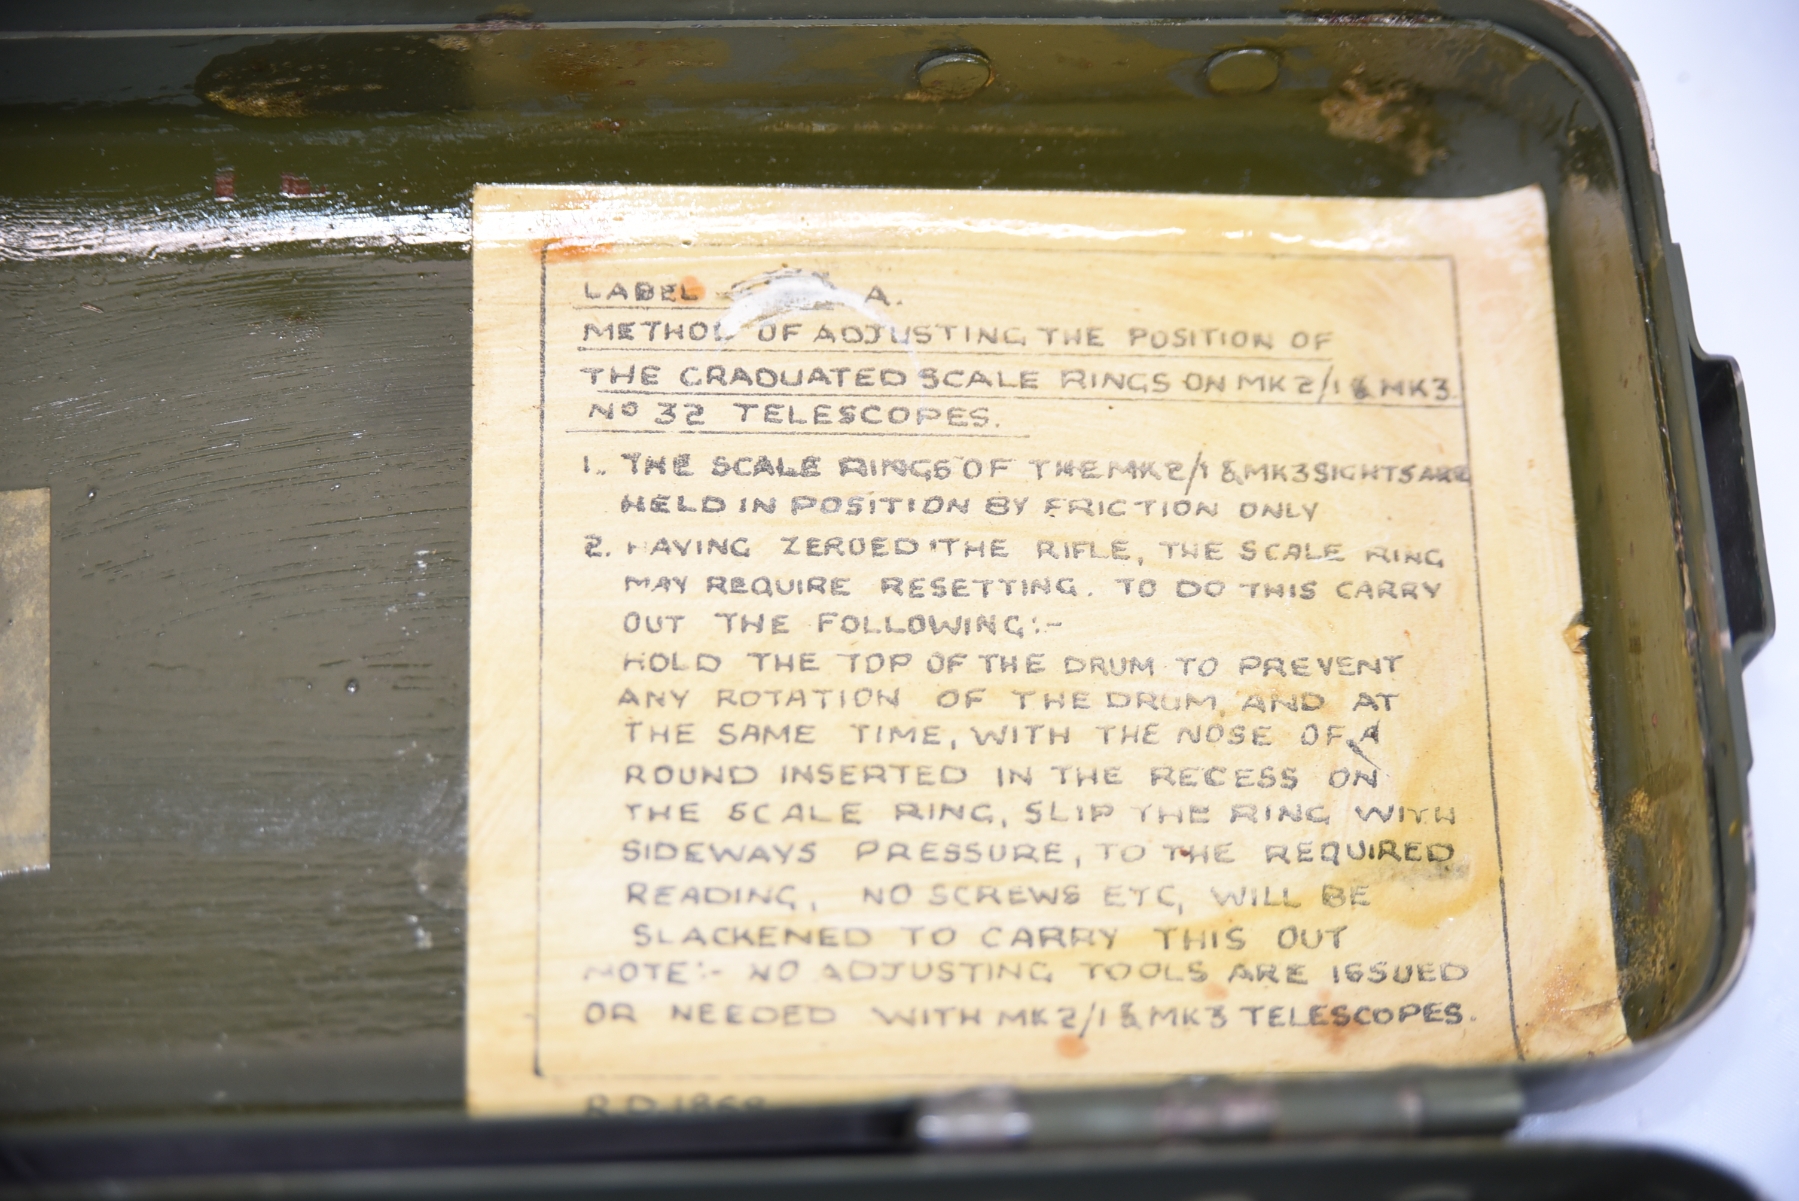 LABEL A.
METHOD OF ADJUSTING THE POSITION OF
THE GRADUATED SCALE RINGS ON MK2/1 & MK3
No 32 TELESCOPES.
1. THE SCALE RINGS OF THE MK2/1 & MK3 SIGHTS ARE
HELD IN POSITION BY FRICTION ONLY
2. HAVING ZEROED THE RIFLE, THE SCALE RING
MAY REQUIRE RESETTING. TO DO THIS CARRY
OUT THE FOLLOWING:-
HOLD THE TOP OF THE DRUM TO PREVENT
ANY ROTATION OF THE DRUM, AND AT
THE SAME TIME, WITH THE NOSE OF A
ROUND INSERTED IN THE RECESS ON
THE SCALE RING, SLIP THE RING WITH
SIDEWAYS PRESSURE, TO THE REQUIRED
READING, NO SCREWS ETC, WILL BE
SLACKENED TO CARRY THIS OUT
NOTE:- NO ADJUSTING TOOLS ARE ISSUED
OR NEEDED WITH MK2/1 & MK3 TELESCOPES.